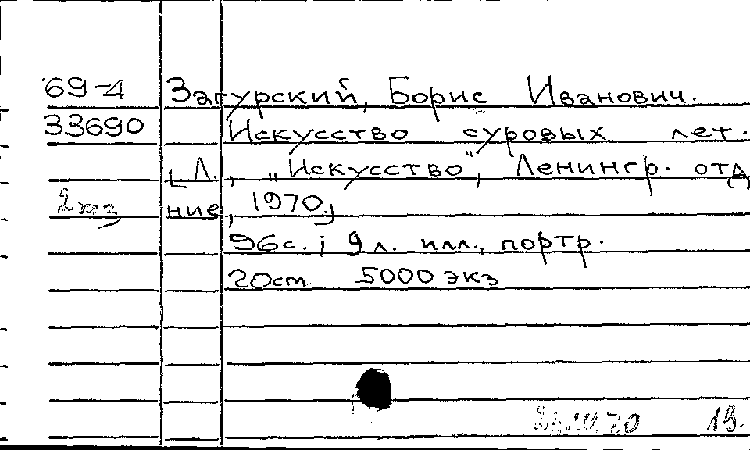 69-4 Загурский, Борис Иванович.
33690 Искусство суровых лет.
[Л., „Искусство", Ленингр. отд
2 экз ние, 1970]
96 с.; 9 л. илл., портр.
20 см 5000 экз
19.